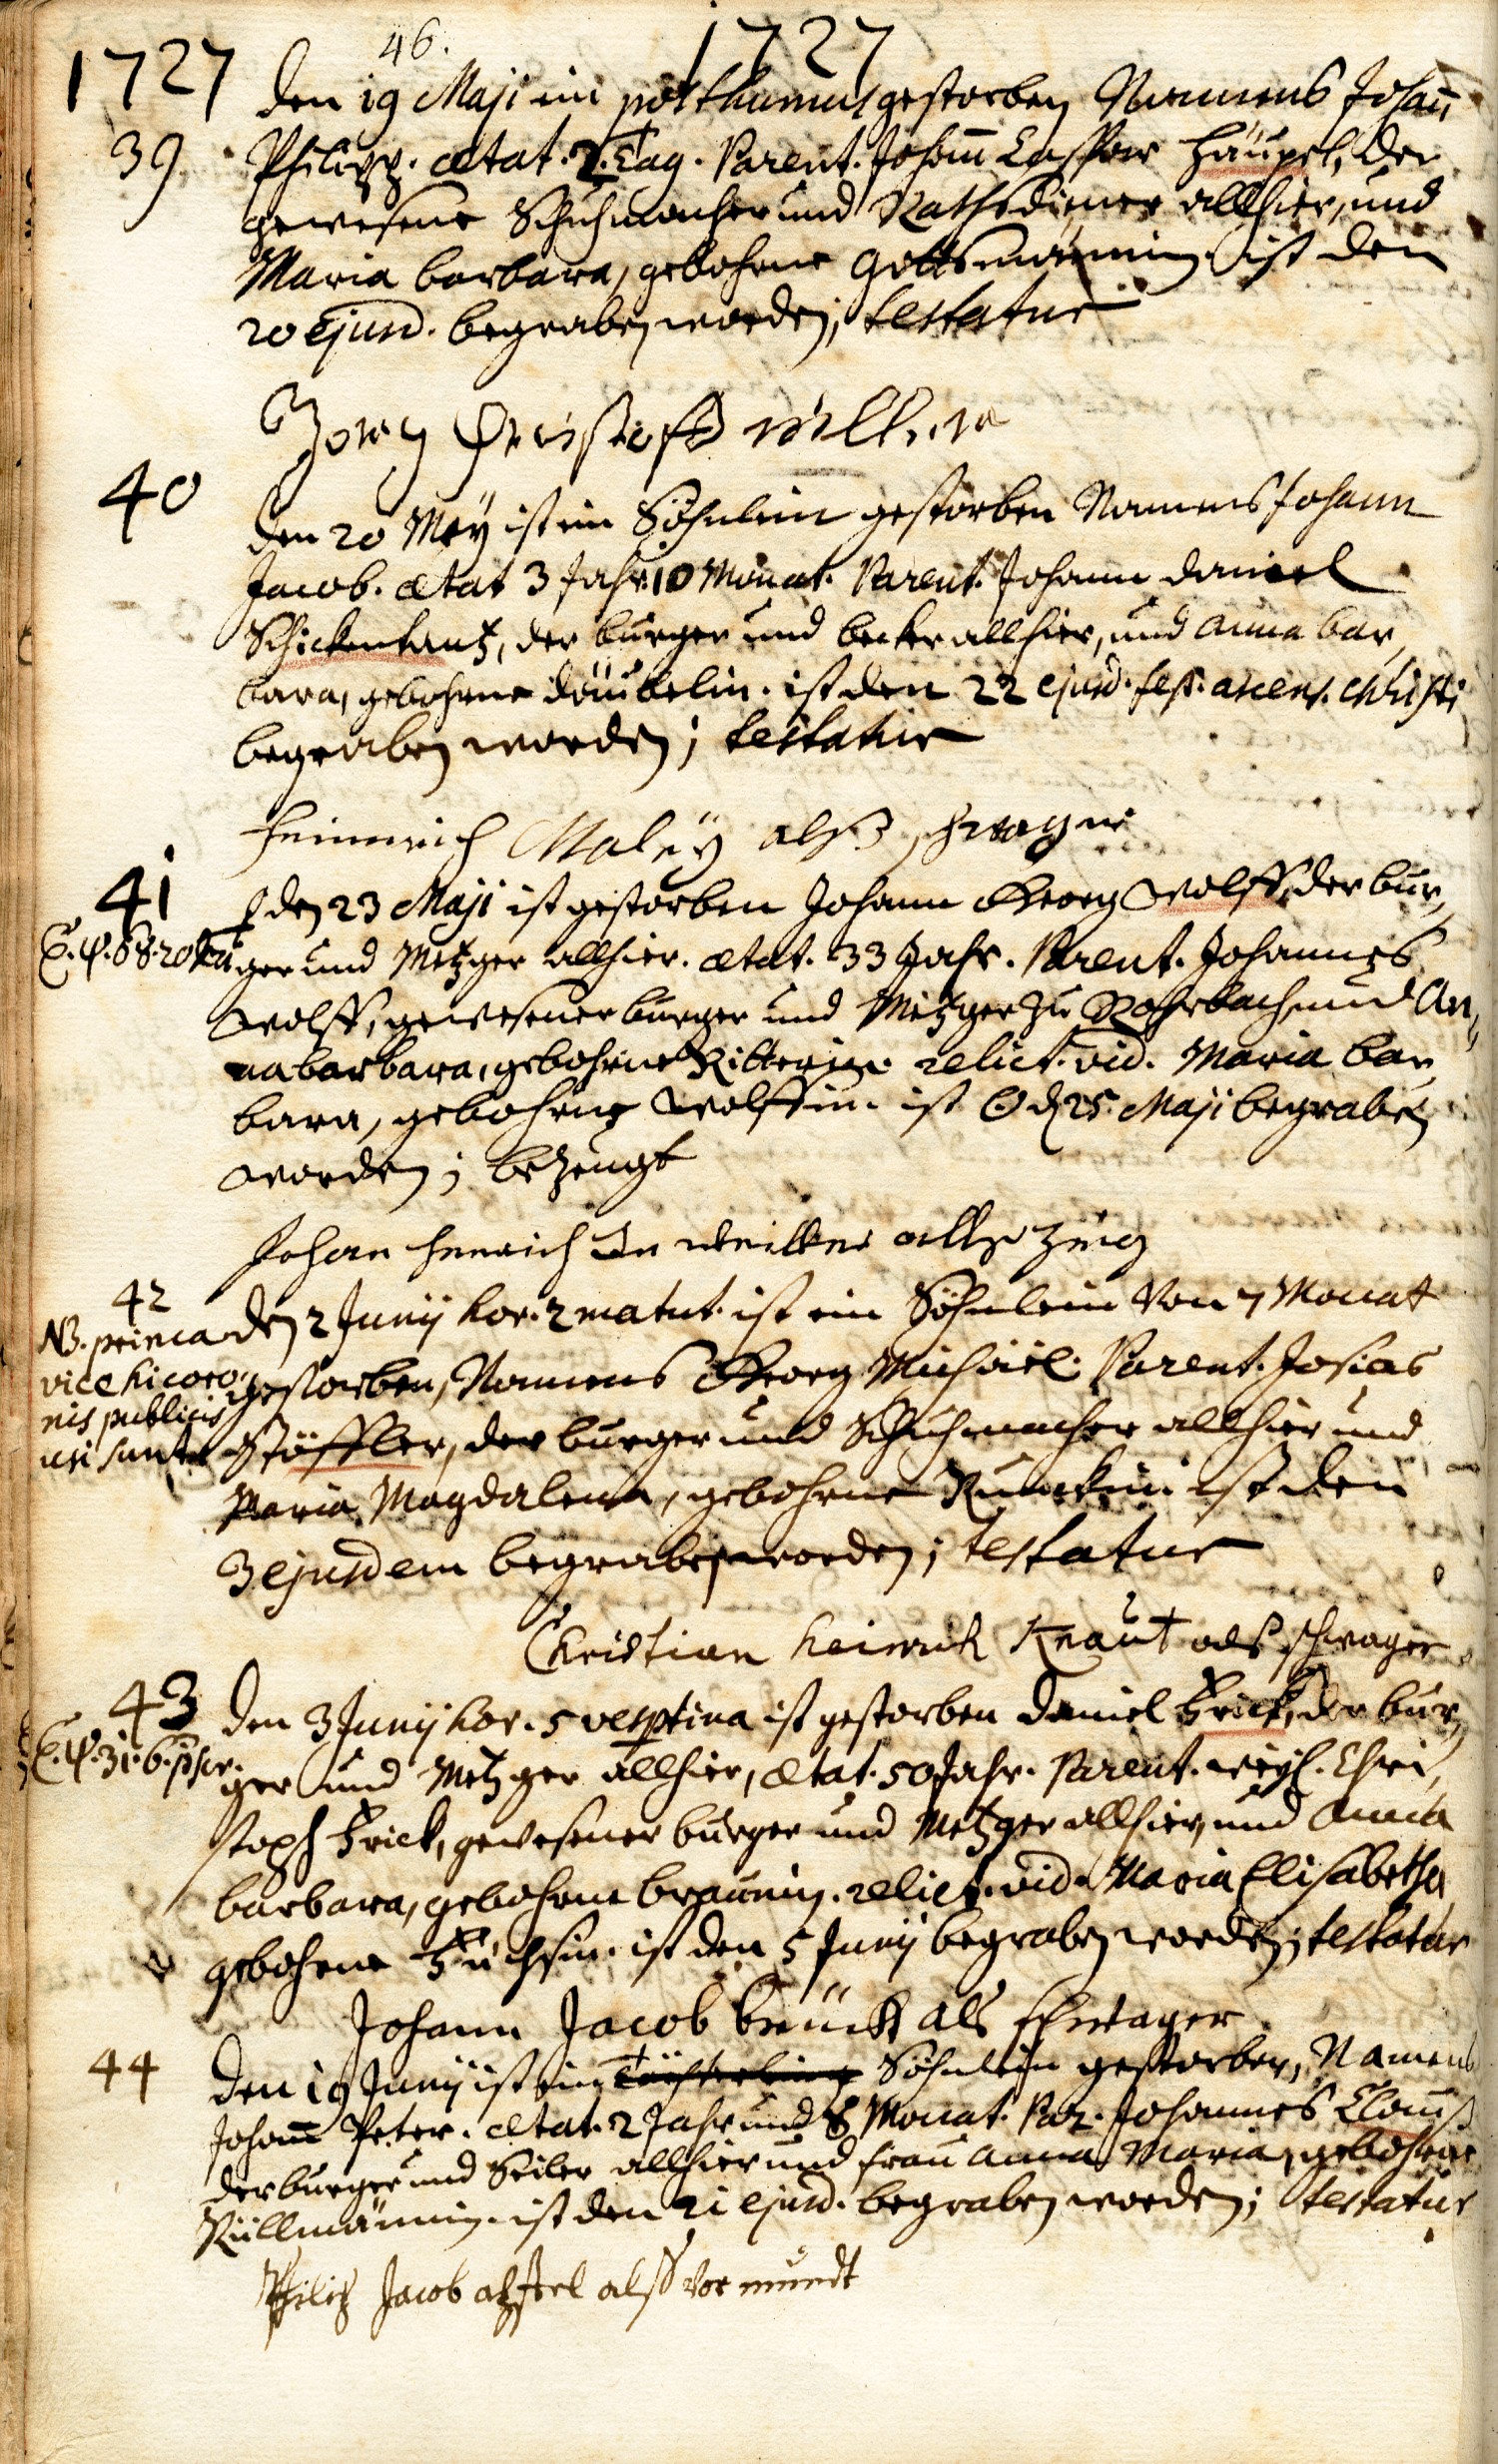 46.
1727 1727
den 19 Maji ein posthumus gestorben Namens Johañ
39. Philipp. ætat. 2. Tag. Parent. Johañ Caspar Häupel, der
gewesene Schuhmacher und Rathsdiener allhier, und
Maria barbara, gebohrne Gottsmännin. ist den
20 Ejusd. begraben worden; testatur
Jorg Christoff
40
den 20 Mey ist ein Söhnlein gestorben Namens Johann
Jacob. ætat 3 Jahr. 10 Monat. Parent. Johann Daniel
Schickentantz, der burger und becker allhier, und Anna bar,
bara, gebohrne däubelin. ist den 22 ejusd. fest. ascens. Christi
begraben worden; testatur
Heinnrich Maleÿ alß schwager
41
den 23 Maji ist gestorben Johann Georg Wolff, der bur,
ger und Metzger allhier. ætat. 33 Jahr. Parent. Johannes
Wolff, gewesener burger und Metzger zu Rohrbach, und An,
na barbara, gebohrne Ritterin. relict. vid. Maria bar,
bara, gebohrne Wolffin. ist ☉ d. 25. Maji begraben
worden; bezeugt
Johan Henrich
42
NB. prima
vice hic coro,
nis publicis
usi sunt
den 2 Junij hor. 2 matut. ist ein Söhnlein Von 7 Monat
gestorben, Namens Georg Michäel. Parent. Josias
Stöffler, der burger und Schuhmacher allhier und
Maria Magdalena, gebohrne Runckin. ist den
3 ejusdem begraben worden; testatur
Christian Heinrich Knaut als schwager
43
den 3 Junij hor. 5 vesptina ist gestorben Daniel Frick, der bur,
ger und Metzger allhier, ætat. 50 Jahr. Parent. weyl. Chri,
stoph Frick, gewesener burger und Metzger allhier, und Anna
barbara, gebohrne braunin. relict. vid. Maria Elisabetha
gebohrne Füchsin. ist den 5 Junij begraben worden; testatur
Johann Jacob brück als schwager
44
den 19 Junij ist ein Töchterlein Söhnlein gestorben, Namens
Johañ Peter. ætat. 2 Jahr und 8 Monat. Par. Johannes Clauß
der burger und Seiler allhier und Frau Anna Maria, gebohrne
Küllmännin. ist den 21 ejusd. begraben worden; testatur
Philip Jacob alß Vormundt